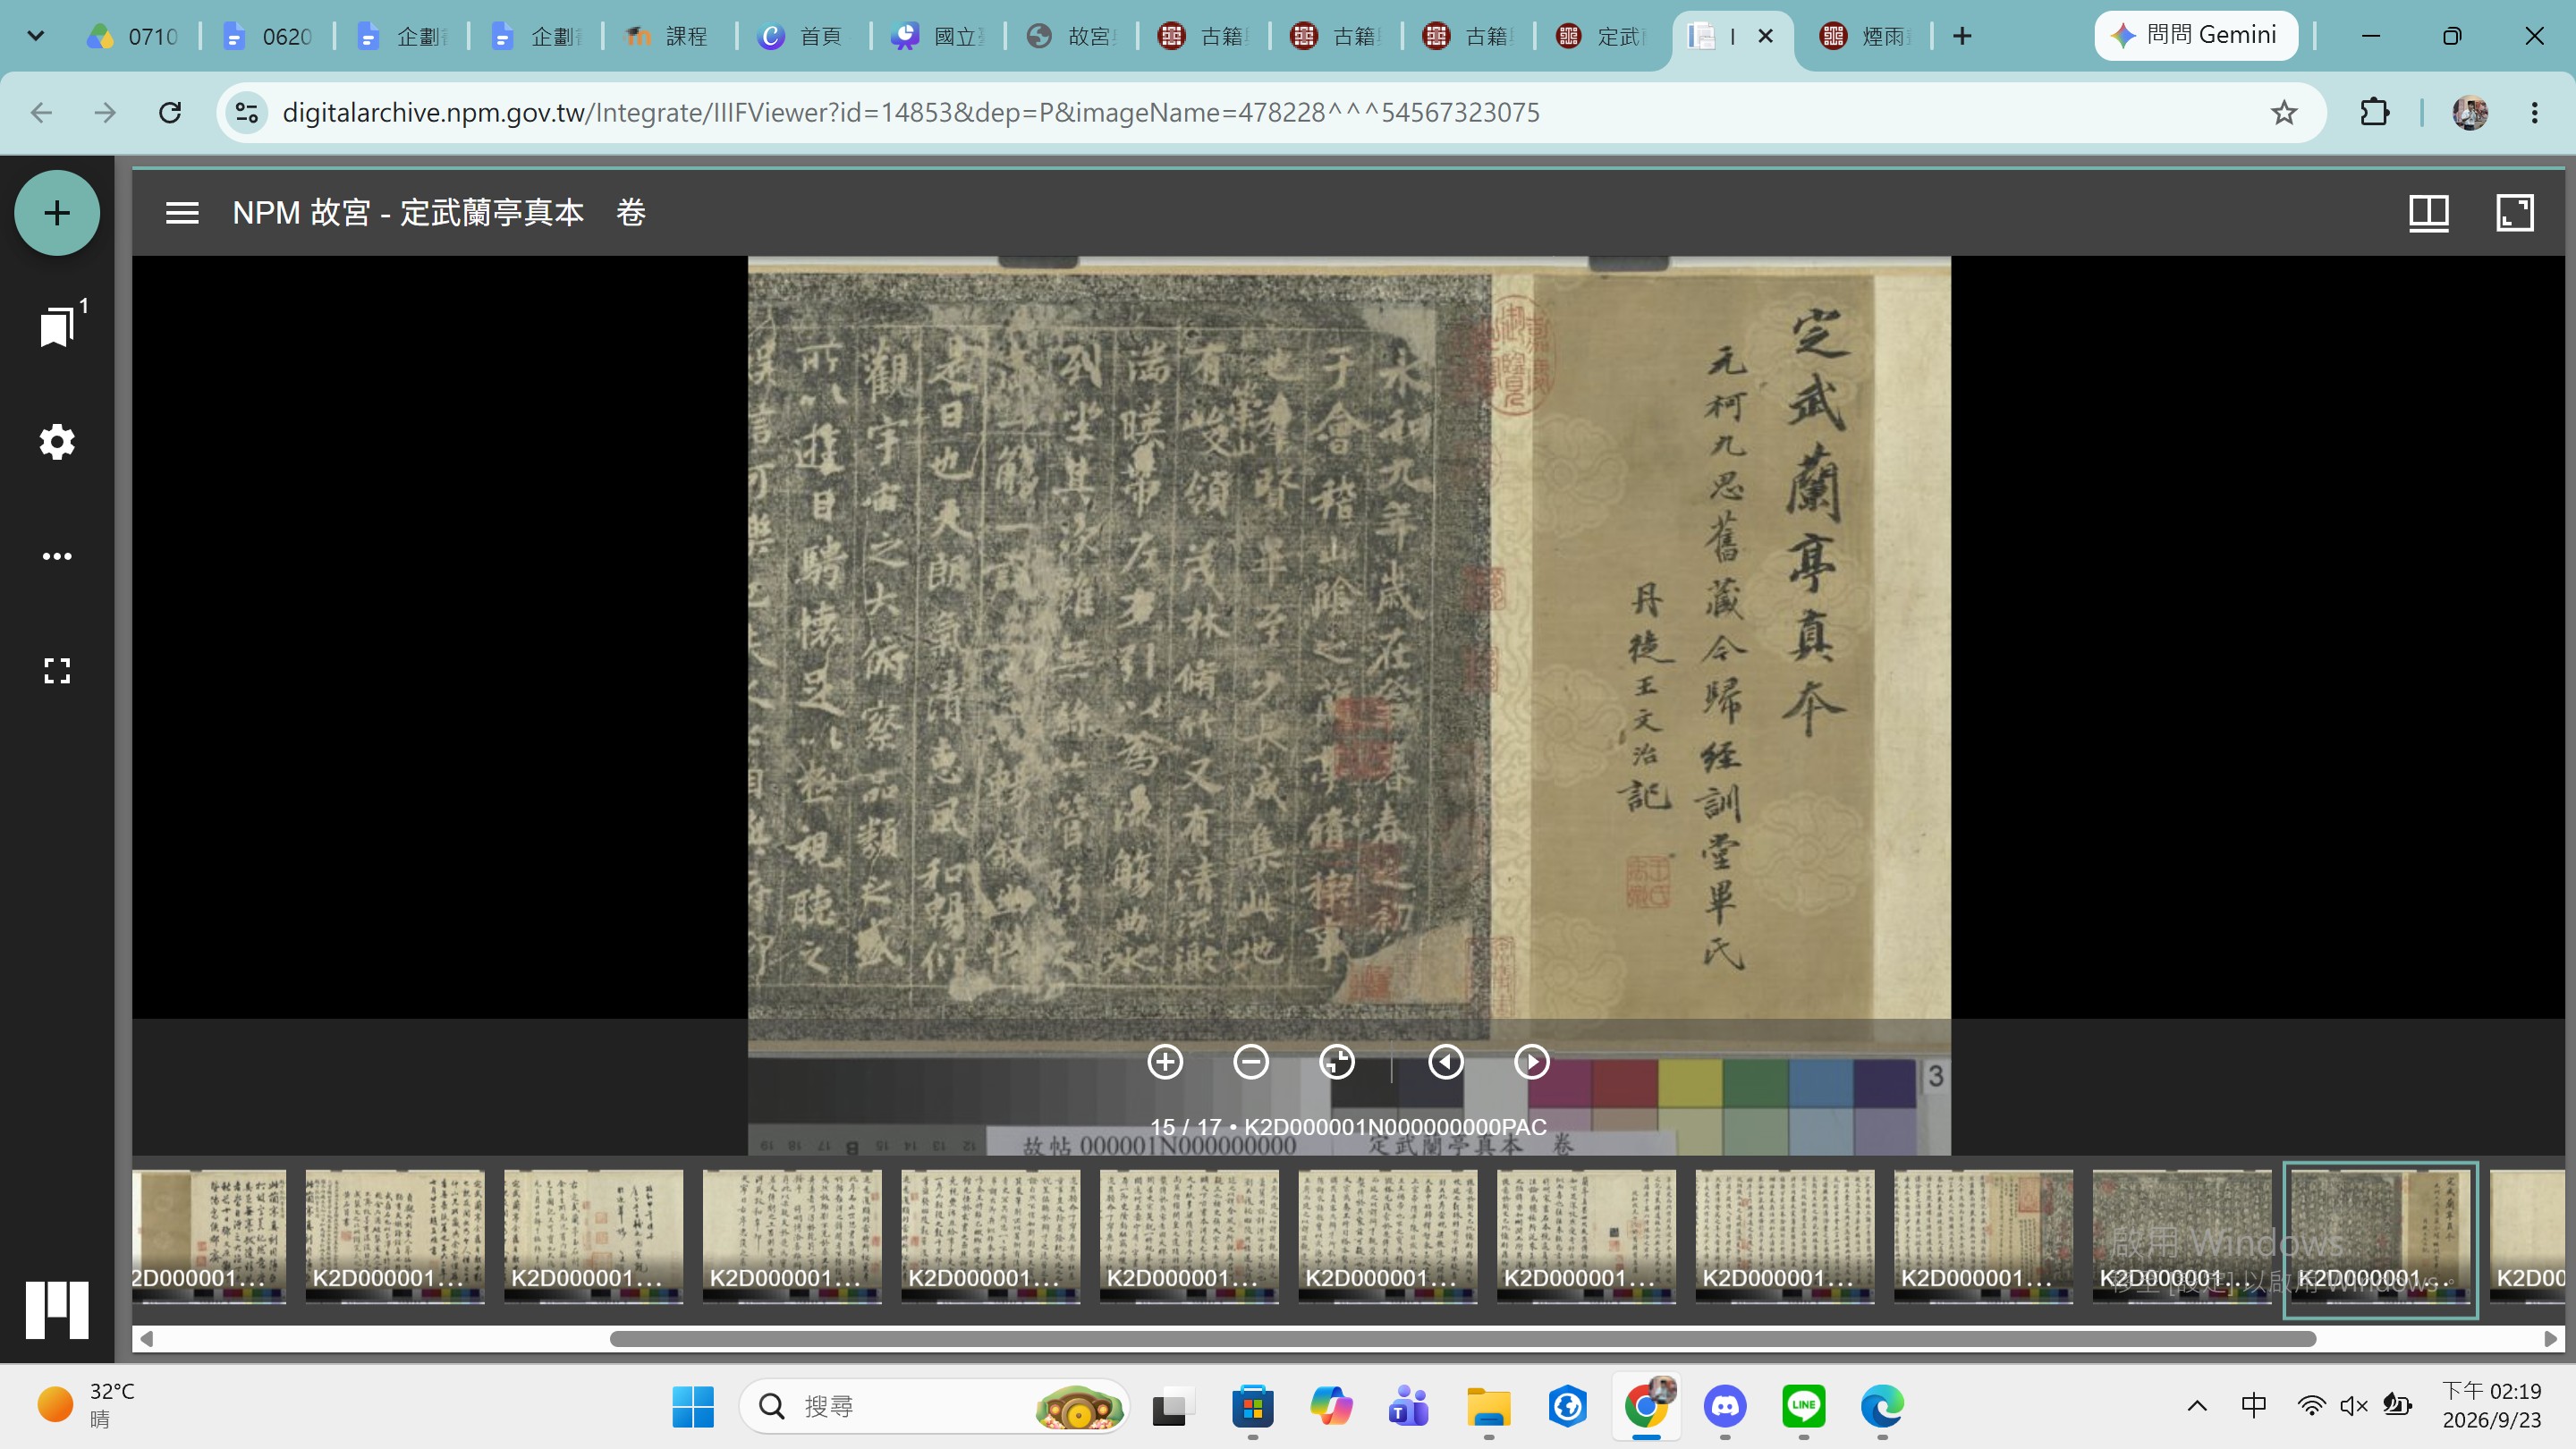 0710
0620
企劃
企劃
課程
首頁
國立
故宮
古籍
古籍
古籍
定武
煙雨
問問 Gemini
digitalarchive.npm.gov.tw/Integrate/IIIFViewer?id=14853&dep=P&imageName=478228^^^54567323075
1
NPM 故宮 - 定武蘭亭真本 卷
定武蘭亭真本
元柯九思舊藏今歸経訓堂畢氏
丹徒王文治記
永和九年歲在暮春之初
于會稽山陰之蘭亭脩禊事
也羣賢畢至少長咸集此地
有峻領茂林脩竹又有清流激
湍暎帶左右引以為流觴曲水
列坐其次雖無絲竹管弦之
盛一觴一詠亦足以暢敘幽情
是日也天朗氣清惠風和暢仰
觀宇宙之大俯察品類之盛
所以遊目騁懷足以極視聽之
信可樂也
3
15 / 17 • K2D000001N000000000PAC
19 18 17 B 15 14 13 12
故帖 000001N000000000 定武蘭亭真本 卷
2D000001...
K2D000001...
K2D000001...
K2D000001...
K2D000001...
K2D000001...
K2D000001...
K2D000001...
K2D000001...
K2D000001...
K2D000001...
K2D000001...
K2D00
啟用 Windows
移至 [設定] 以啟用 Windows。
32°C
晴
搜尋
中
下午 02:19
2026/9/23